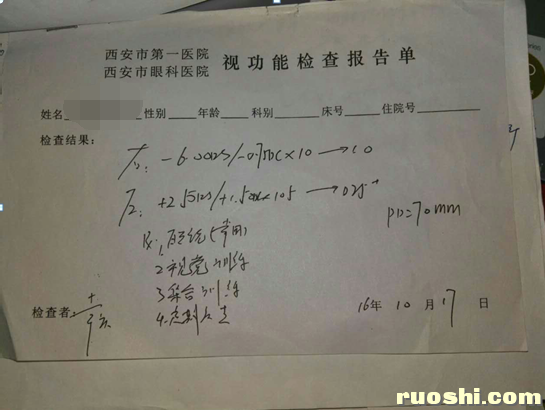 西安市第一医院
西安市眼科医院 视功能检查报告单
姓名 性别 年龄 科别 床号 住院号
检查结果:
-6.00DS/-0.75DC×10→1.0
+2.50DS/+1.50DC×105→0.25
PD=70mm
2.视觉训练
3.集合训练
检查者:
16年10月17日
ruoshi.com